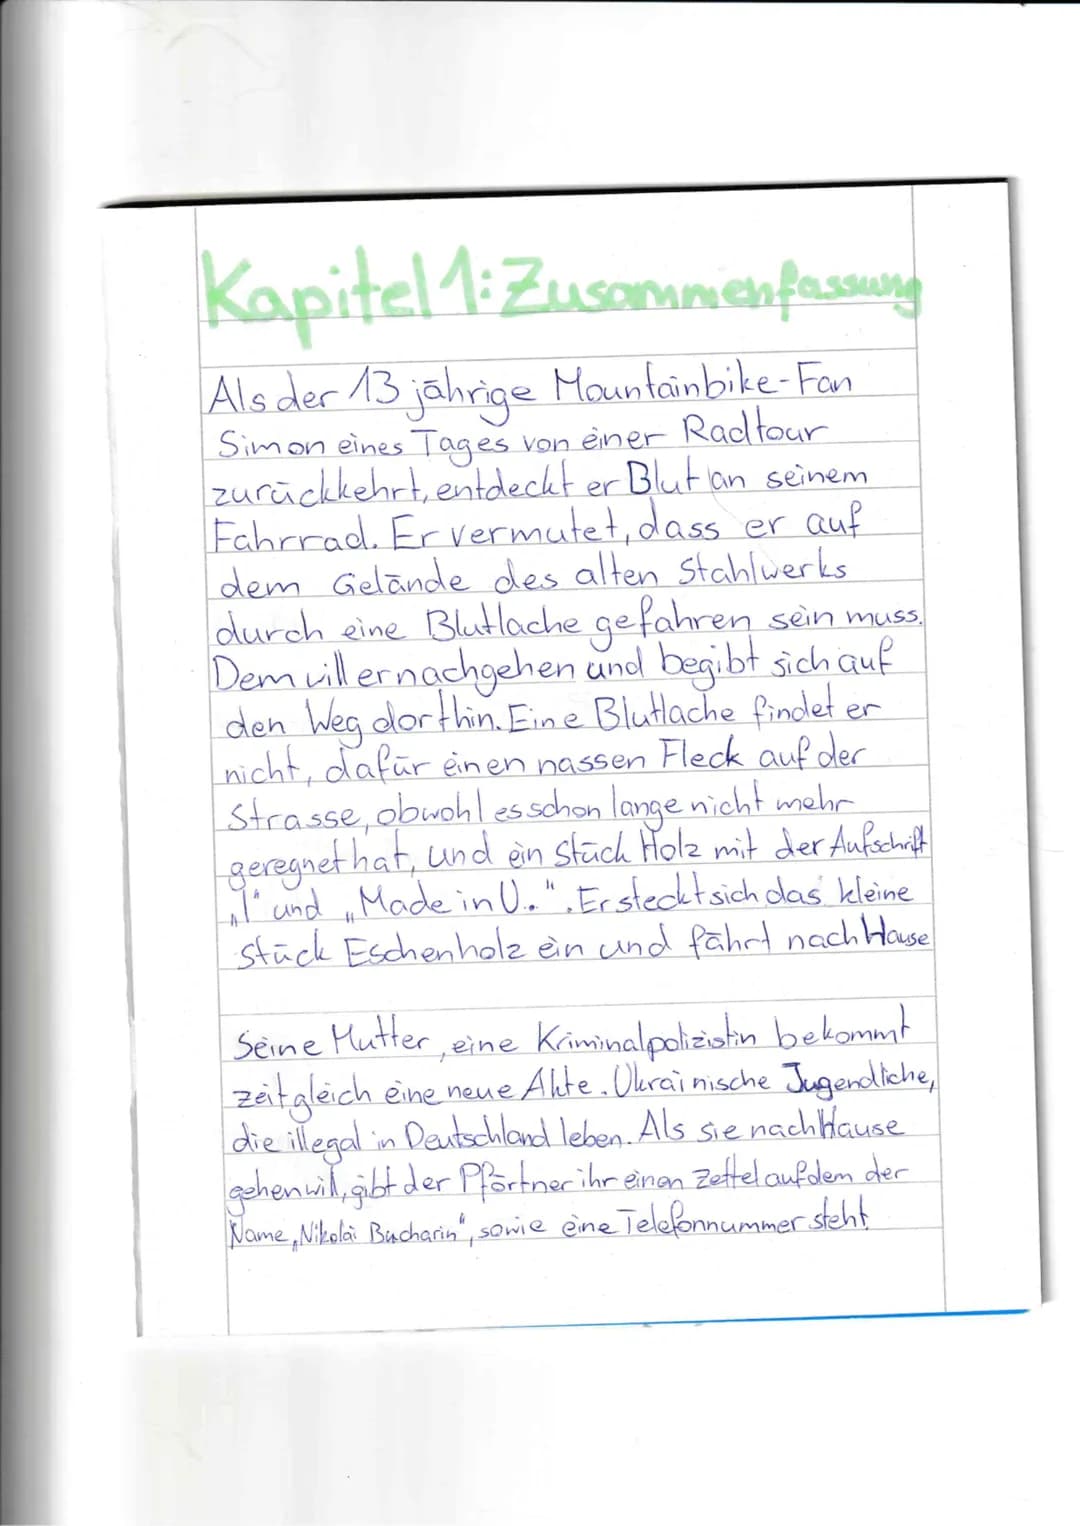 Kapitel 1: Zusammenfassung
Als der 13 jährige Mountainbike-Fan
Simon eines Tages von einer Radtour
zurückkehrt, entdeckt er Blut an seinem
Fahrrad. Er vermutet, dass er auf
dem Gelände des alten Stahlwerks
durch eine Blutlache gefahren sein muss.
Dem will er nachgehen und begibt sich auf
den Weg dorthin. Eine Blutlache findet er
nicht, dafür einen nassen Fleck auf der
Strasse, obwohl es schon lange nicht mehr
geregnet hat, und ein Stück Holz mit der Aufschrift
„1“ und „Made in U..“. Er steckt sich das kleine
Stück Eschenholz ein und fährt nach Hause
Seine Mutter, eine Kriminalpolizistin bekommt
zeitgleich eine neue Akte. Ukrainische Jugendliche,
die illegal in Deutschland leben. Als sie nach Hause
gehen will, gibt der Pförtner ihr einen Zettel auf dem der
Name „Nikolai Bucharin“, sowie eine Telefonnummer steht.